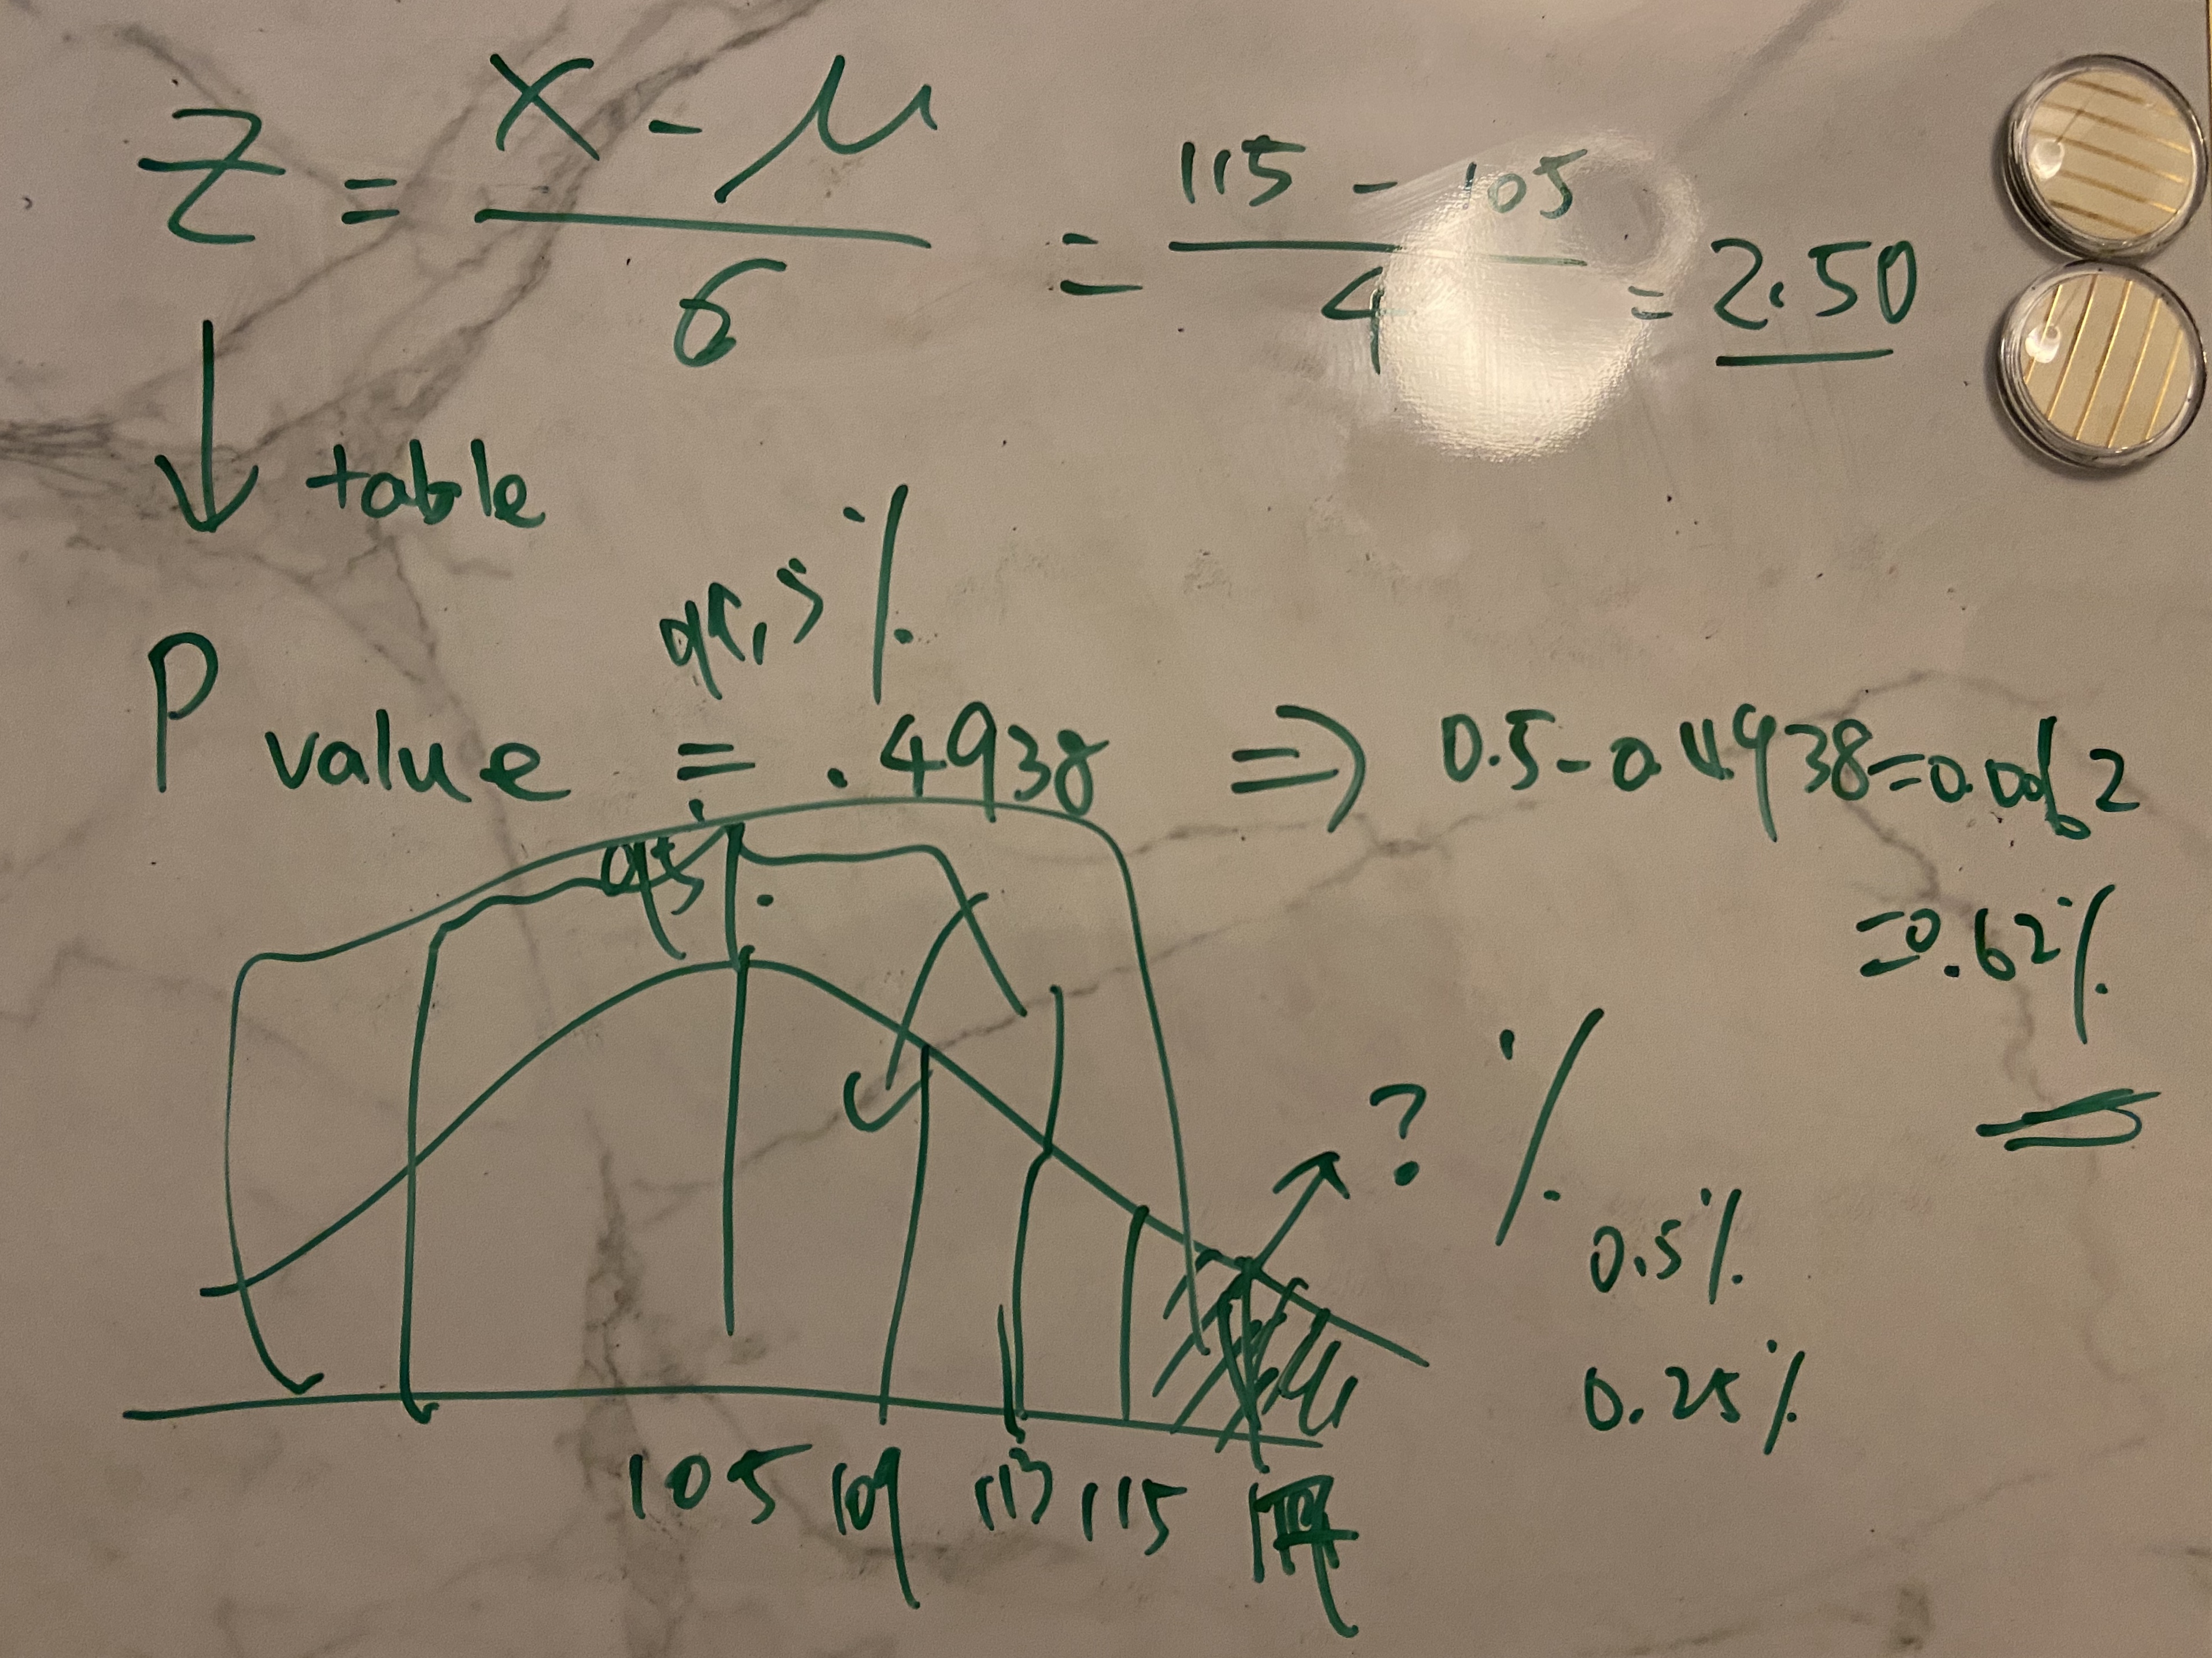 Z = X - μ / σ = 115 - 105 / 4 = 2.50
↓ table
P value = .4938 ⇒ 0.5 - 0.4938 = 0.0062
= 0.62%
95
? %
0.5%
0.25%
105 109 113 115